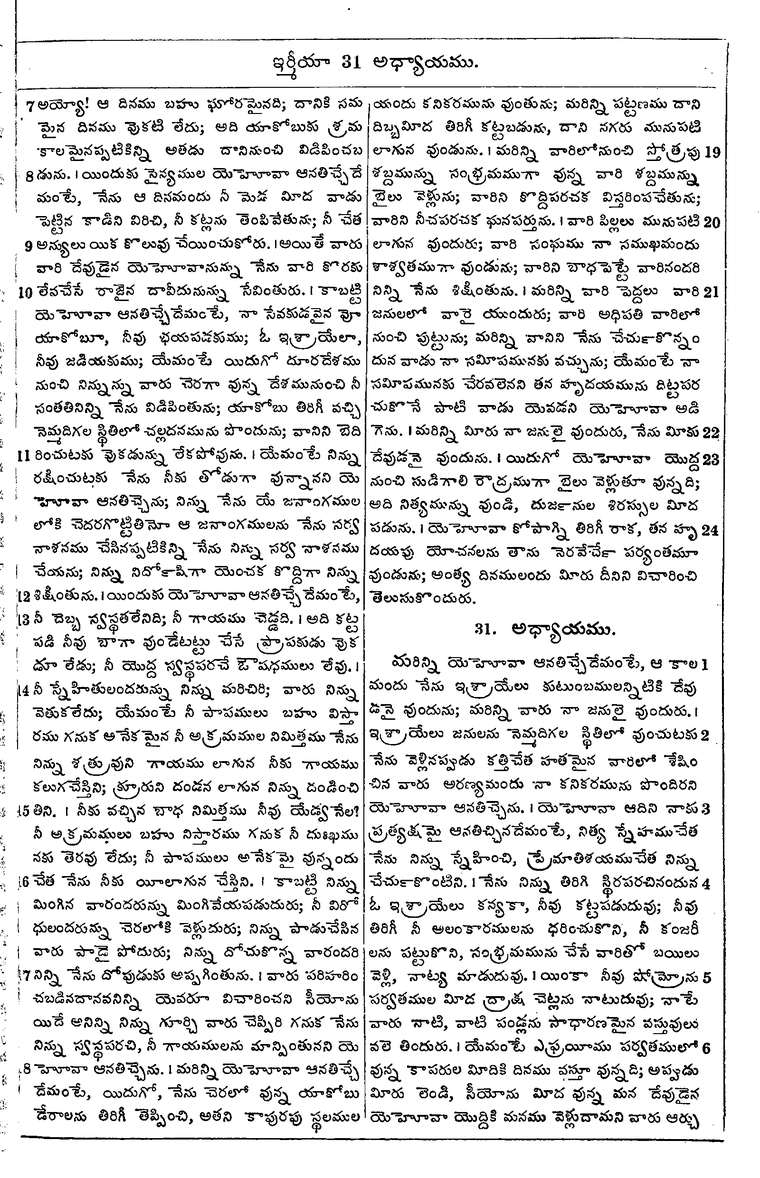 ఇర్మీయా 31 అధ్యాయము.
7 అయ్యో! ఆ దినము బహు ఘోరమైనది; దానికి సమ
మైన దినము వుకటి లేదు; అది యాకోబుకు శ్రమ
కాలమైనప్పటికిన్ని అతడు దానినుంచి విడిపించబ
8 డును. । యిందుకు సైన్యముల యెహోవా ఆనతిచ్చేదే
మంటే, నేను ఆ దినమందు నీ మెడ మీద వాడు
పెట్టిన కాడిని విరిచి, నీ కట్లను తెంపివేతును; నీ చేత
9 అన్యులు యిక కొలువు చేయించుకోరు. । అయితే వారు
వారి దేవుడైన యెహోవానున్ను నేను వారి కొరకు
10 లేవచేసే రాజైన దావీదునున్ను సేవింతురు. । కాబట్టి
యెహోవా ఆనతిచ్చేదేమంటే, నా సేవకుడవైన వో
యాకోబూ, నీవు భయపడకుము; ఓ ఇశ్రాయేలా,
నీవు జడియకుము; యేమంటే యిదుగో దూరదేశము
నుంచి నిన్నున్ను వారు చెరగా వున్న దేశమునుంచి నీ
సంతతినిన్ని నేను విడిపింతును; యాకోబు తిరిగీ వచ్చి
నెమ్మదిగల స్థితిలో చల్లదనమును పొందును; వానిని బెది
11 రించుటకు వుకడున్ను లేకపోవును. । యేమంటే నిన్ను
రక్షించుటకు నేను నీకు తోడుగా వున్నానని యె
హోవా ఆనతిచ్చెను; నిన్ను నేను యే జనాంగముల
లోకి చెదరగొట్టితినో ఆ జనాంగములను నేను సర్వ
నాశనము చేసినప్పటికిన్ని నేను నిన్ను సర్వ నాశనము
చేయను; నిన్ను నిర్దోషిగా యెంచక కొద్దిగా నిన్ను
12 శిక్షింతును. । యిందుకు యెహోవా ఆనతిచ్చేదేమంటే,
13 నీ దెబ్బ స్వస్థతలేనిది; నీ గాయము చెడ్డది. । అది కట్ట
పడి నీవు బాగా వుండేటట్టు చేసే ప్రాపకుడు వుక
డూ లేడు; నీ యొద్ద స్వస్థపరచే ఔషధములు లేవు. ।
14 నీ స్నేహితులందరున్ను నిన్ను మరిచిరి; వారు నిన్ను
వెతుకలేదు; యేమంటే నీ పాపములు బహు విస్తా
రము గనుక అనేకమైన నీ అక్రమముల నిమిత్తము నేను
నిన్ను శత్రువుని గాయము లాగున నీకు గాయము
కలుగచేస్తిని; క్రూరుని దండన లాగున నిన్ను దండించి
15 తిని. । నీకు వచ్చిన బాధ నిమిత్తము నీవు యేడ్వనేల?
నీ అక్రమములు బహు నిస్తారము గనుక నీ దుఃఖము
నకు తెరవు లేదు; నీ పాపములు అనేకమై వున్నందు
16 చేత నేను నీకు యీలాగున చేస్తిని. । కాబట్టి నిన్ను
మింగిన వారందరున్ను మింగివేయపడుదురు; నీ విరో
ధులందరున్ను చెరలోకి వెళ్లుదురు; నిన్ను పాడుచేసిన
వారు పాడై పోదురు; నిన్ను దోచుకొన్న వారందరి
17 నిన్ని నేను దోవుడుకు అప్పగింతును. । వారు పరిహరిం
చబడినదానవనిన్ని యెవరూ విచారించని సీయోను
యిదే అనిన్ని నిన్ను గూర్చి వారు చెప్పిరి గనుక నేను
నిన్ను స్వస్థపరచి, నీ గాయములను మాన్పింతునని యె
18 హోవా ఆనతిచ్చెను. । మరిన్ని యెహోవా ఆనతిచ్చే
దేమంటే, యిదుగో, నేను చెరలో వున్న యాకోబు
డేరాలను తిరిగీ తెప్పించి, అతని కాపురపు స్థలముల
యందు కనికరమును వుంతును; మరిన్ని పట్టణము దాని
దిబ్బమీద తిరిగీ కట్టబడును, దాని నగరు మునుపటి
లాగున వుండును. । మరిన్ని వారిలోనుంచి స్తోత్రపు 19
శబ్దమున్ను సంభ్రమముగా వున్న వారి శబ్దమున్ను
బైలు వెళ్లును; వారిని కొద్దిపరచక విస్తరింపచేతును;
వారిని నీచపరచక ఘనపర్తును. । వారి పిల్లలు మునుపటి 20
లాగున వుందురు; వారి సంఘము నా సముఖమందు
శాశ్వతముగా వుండును; వారిని బాధపెట్టే వారినందరి
నిన్ని నేను శిక్షింతును. । మరిన్ని వారి పెద్దలు వారి 21
జనులలో వారై యుందురు; వారి అధిపతి వారిలో
నుంచి పుట్టును; మరిన్ని వానిని నేను చేర్చుకొన్నం
దున వాడు నా సమీపమునకు వచ్చును; యేమంటే నా
సమీపమునకు చేరవలెనని తన హృదయమును దిట్టపర
చుకొనే పాటి వాడు యెవడని యెహోవా అడి
గెను. । మరిన్ని మీరు నా జనులై వుందురు, నేను మీకు 22
దేవుడనై వుందును. । యిదుగో యెహోవా యొద్ద 23
నుంచి సుడిగాలి రౌద్రముగా బైలు వెళ్లుతూ వున్నది;
అది నిత్యమున్ను వుండి, దుర్జనుల శిరస్సుల మీద
పడును. । యెహోవా కోపాగ్ని తిరిగీ రాక, తన హృ 24
దయపు యోచనలను తాను నెరవేర్చే పర్యంతమూ
వుండును; అంత్య దినములందు మీరు దీనిని విచారించి
తెలుసుకొందురు.
31. అధ్యాయము.
మరిన్ని యెహోవా ఆనతిచ్చేదేమంటే, ఆ కాల 1
మందు నేను ఇశ్రాయేలు కుటుంబములన్నిటికి దేవు
డనై వుందును; మరిన్ని వారు నా జనులై వుందురు. ।
ఇశ్రాయేలు జనులను నెమ్మదిగల స్థితిలో వుంచుటకు 2
నేను వెళ్లినప్పుడు కత్తిచేత హతమైన వారిలో శేషిం
చిన వారు అరణ్యమందు నా కనికరమును పొందిరని
యెహోవా ఆనతిచ్చెను. । యెహోవా ఆదిని నాకు 3
ప్రత్యక్షమై ఆనతిచ్చినదేమంటే, నిత్య స్నేహముచేత
నేను నిన్ను స్నేహించి, ప్రేమాతిశయముచేత నిన్ను
చేర్చుకొంటిని. । నేను నిన్ను తిరిగి స్థిరపరచినందున 4
ఓ ఇశ్రాయేలు కన్యకా, నీవు కట్టపడుదువు; నీవు
తిరిగీ నీ అలంకారములను ధరించుకొని, నీ కంజరీ
లను పట్టుకొని, సంభ్రమమును చేసే వారితో బయిలు
వెళ్లి, నాట్య మాడుదువు. । యింకా నీవు షోమ్రోను 5
పర్వతముల మీద ద్రాక్ష చెట్లను నాటుదువు; నాటే
వారు నాటి, వాటి పండ్లను సాధారణమైన వస్తువులు
వలె తిందురు. । యేమంటే ఎఫ్రయీము పర్వతములో 6
వున్న కాపరుల మీదికి దినము వస్తూ వున్నది; అప్పుడు
మీరు లెండి, సీయోను మీద వున్న మన దేవుడైన
యెహోవా యొద్దికి మనము వెళ్లుదామని వారు ఆర్చు